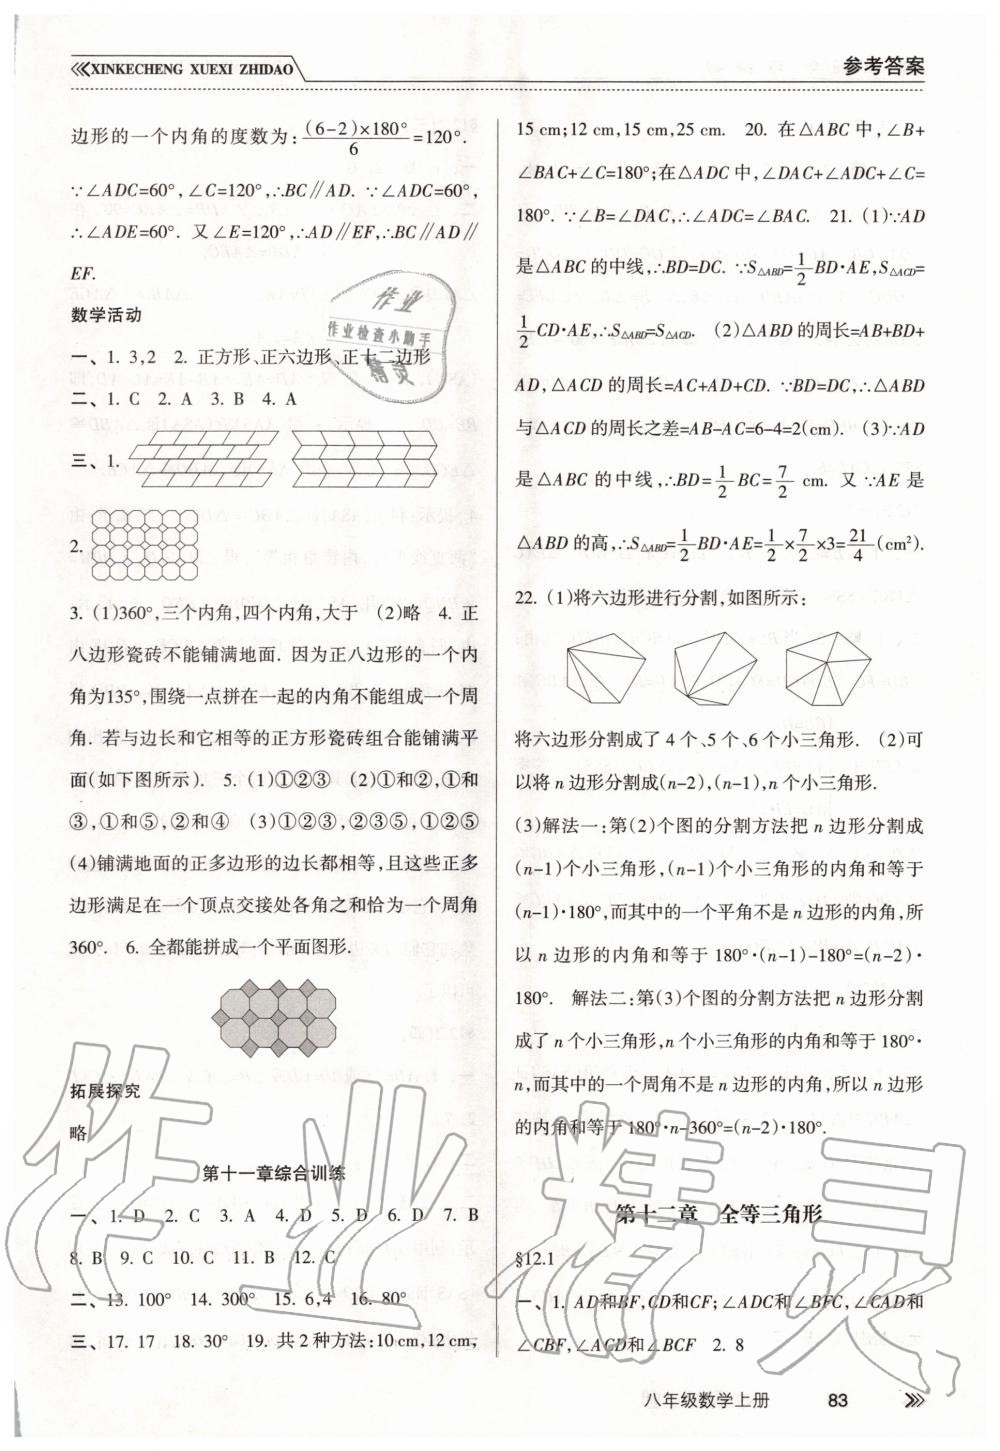 XINKECHENG XUEXI ZHIDAO
参考答案
边形的一个内角的度数为:(6-2)×180°/6=120°.
∵∠ADC=60°,∠C=120°,∴BC∥AD. ∵∠ADC=60°,
∴∠ADE=60°. 又∠E=120°,∴AD∥EF,∴BC∥AD∥
EF.
数学活动
一、1. 3,2 2. 正方形、正六边形、正十二边形
二、1. C 2. A 3. B 4. A
三、1.
2.
3. (1)360°,三个内角,四个内角,大于 (2)略 4. 正
八边形瓷砖不能铺满地面. 因为正八边形的一个内
角为135°,围绕一点拼在一起的内角不能组成一个周
角. 若与边长和它相等的正方形瓷砖组合能铺满平
面(如下图所示). 5. (1)①②③ (2)①和②,①和
③,①和⑤,②和④ (3)①②③,②③⑤,①②⑤
(4)铺满地面的正多边形的边长都相等,且这些正多
边形满足在一个顶点交接处各角之和恰为一个周角
360°. 6. 全都能拼成一个平面图形.
拓展探究
略
第十一章综合训练
一、1. D 2. C 3. A 4. D 5. D 6. D 7. B
8. B 9. C 10. C 11. B 12. C
二、13. 100° 14. 300° 15. 6,4 16. 80°
三、17. 17 18. 30° 19. 共2种方法:10 cm,12 cm,
15 cm;12 cm,15 cm,25 cm. 20. 在△ABC中,∠B+
∠BAC+∠C=180°;在△ADC中,∠DAC+∠ADC+∠C=
180°. ∵∠B=∠DAC,∴∠ADC=∠BAC. 21. (1)∵AD
是△ABC的中线,∴BD=DC. ∵S△ABD=1/2BD·AE,S△ACD=
1/2CD·AE,∴S△ABD=S△ACD. (2)△ABD的周长=AB+BD+
AD,△ACD的周长=AC+AD+CD. ∵BD=DC,∴△ABD
与△ACD的周长之差=AB-AC=6-4=2(cm). (3)∵AD
是△ABC的中线,∴BD=1/2BC=7/2 cm. 又∵AE是
△ABD的高,∴S△ABD=1/2BD·AE=1/2×7/2×3=21/4(cm²).
22. (1)将六边形进行分割,如图所示:
将六边形分割成了4个、5个、6个小三角形. (2)可
以将n边形分割成(n-2),(n-1),n个小三角形.
(3)解法一:第(2)个图的分割方法把n边形分割成
(n-1)个小三角形,(n-1)个小三角形的内角和等于
(n-1)·180°,而其中的一个平角不是n边形的内角,所
以n边形的内角和等于180°·(n-1)-180°=(n-2)·
180°. 解法二:第(3)个图的分割方法把n边形分割
成了n个小三角形,n个小三角形的内角和等于180°·
n,而其中的一个周角不是n边形的内角,所以n边形
的内角和等于180°·n-360°=(n-2)·180°.
第十二章 全等三角形
§12.1
一、1. AD和BF,CD和CF;∠ADC和∠BFC,∠CAD和
∠CBF,∠ACD和∠BCF 2. 8
八年级数学上册 83
作业
作业检查小助手
精灵
作业精灵